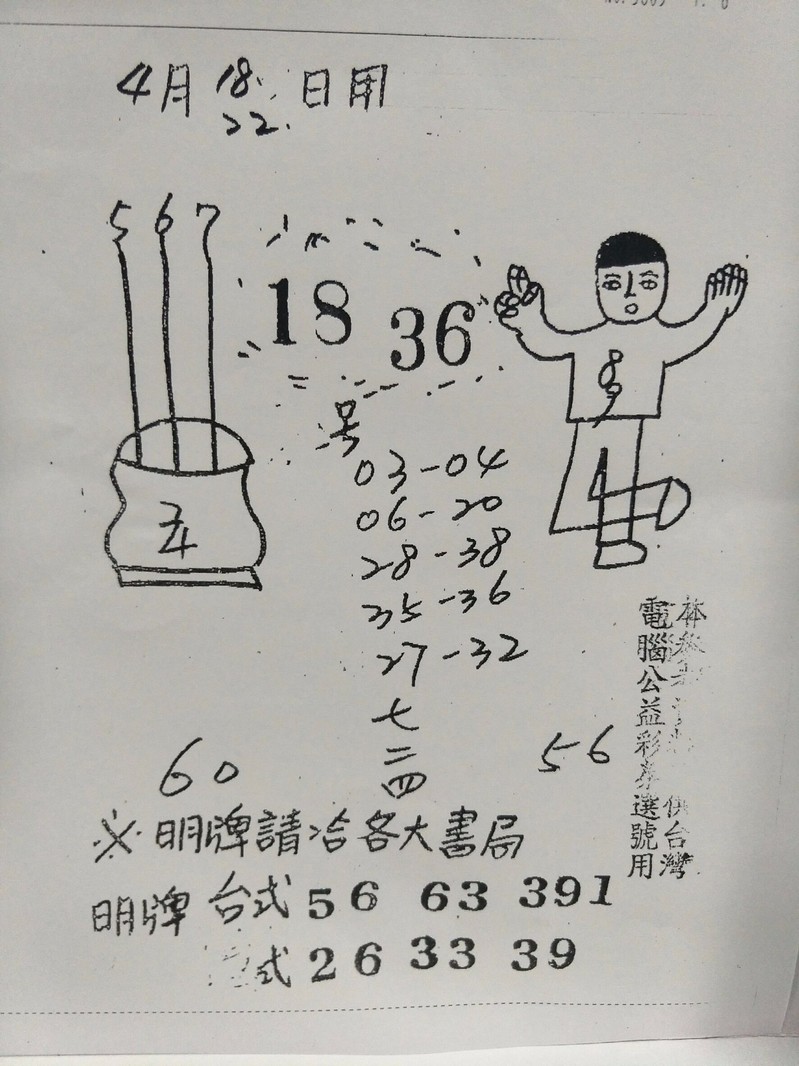 4月 18. 日用
22.
5 6 7
18 36
号
03-04
06-20
28-38
35-36
27-32
七
二
四
60
56
電腦公益彩券選號用
供台灣
※明牌請洽各大書局
明牌 台式 56 63 391
式 26 33 39